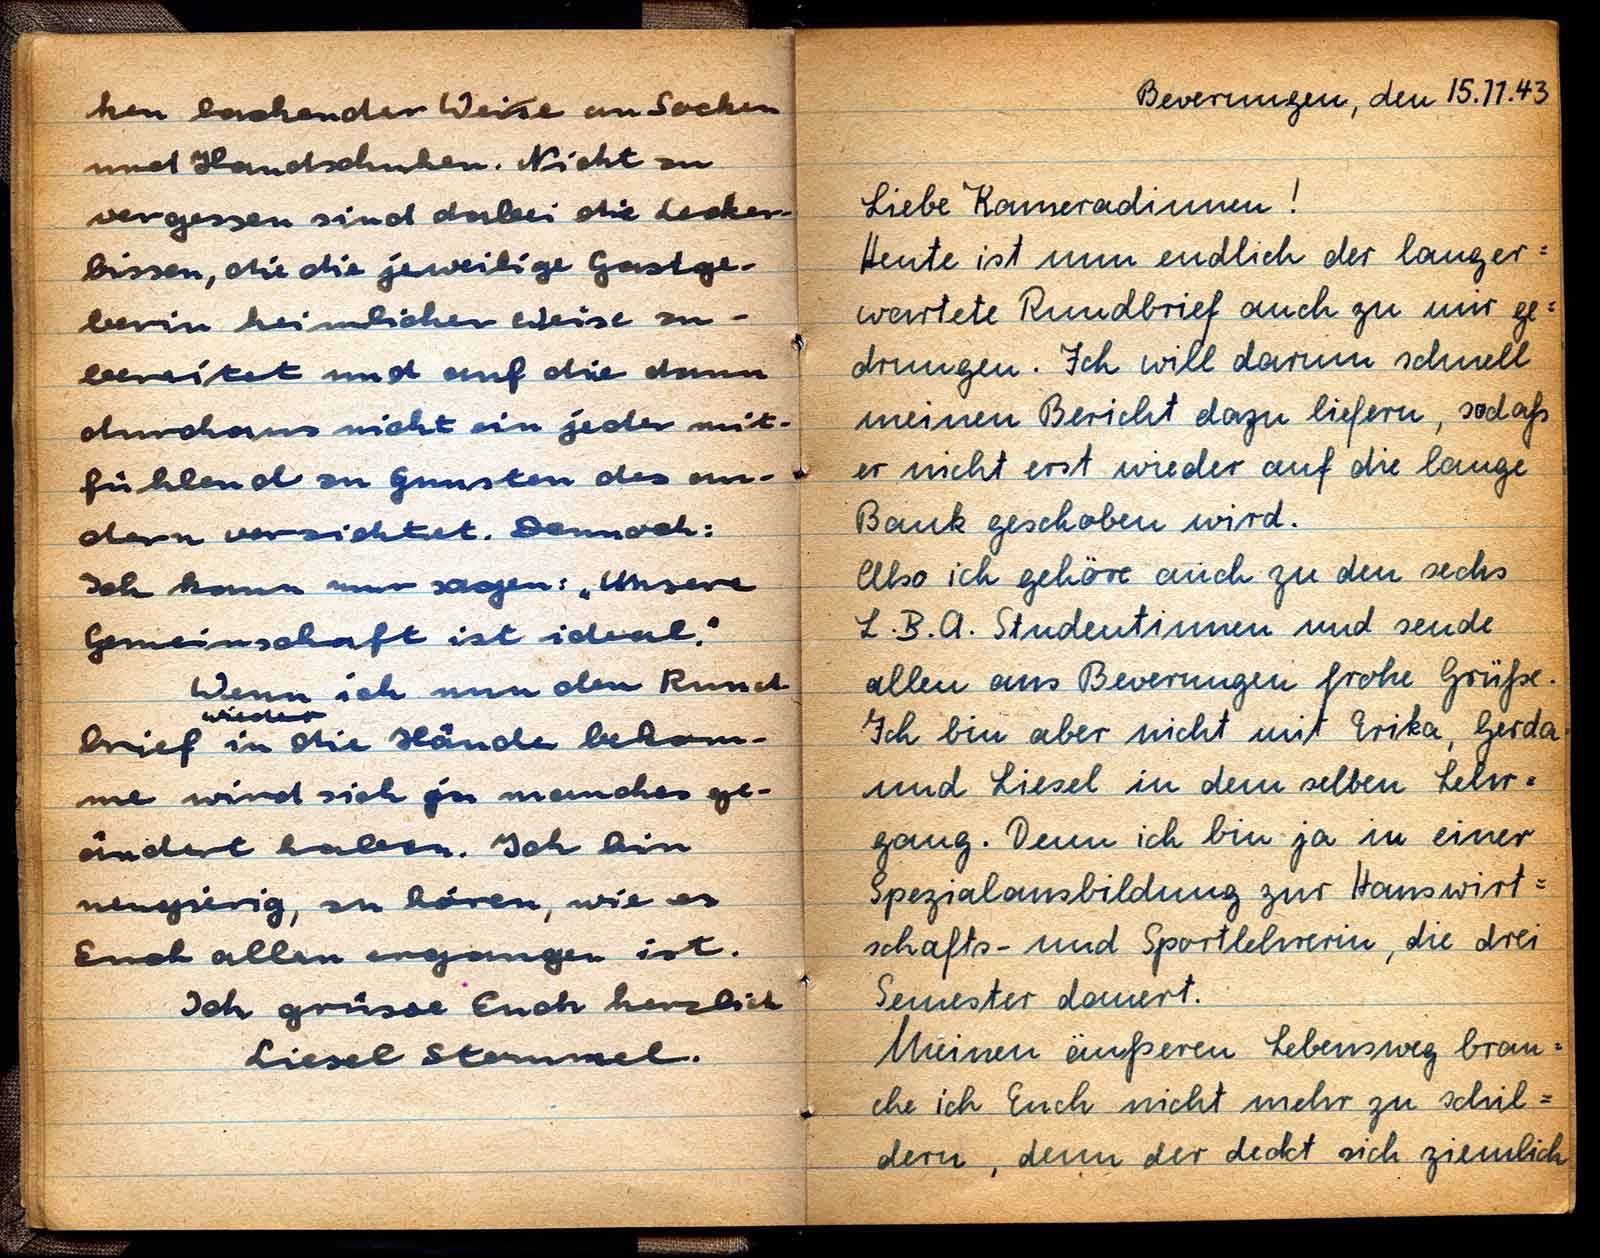 ken lachender Weise an Socken
und Handschuhen. Nicht zu
vergessen sind dabei die Lecker-
bissen, die die jeweilige Gastge-
berin heimlicher Weise zu-
bereitet und auf die dann
durchaus nicht ein jeder mit-
fühlend zu Gunsten des an-
dern verzichtet. Dennoch:
Ich kann nur sagen: „Unsere
Gemeinschaft ist ideal."
Wenn ich nun den Rund
wieder
brief in die Hände bekom-
me wird sich ja manches ge-
ändert haben. Ich bin
neugierig, zu hören, wie es
Euch allen ergangen ist.
Ich grüsse Euch herzlich
Liesel Stemmel.
Beverungen, den 15.11.43
Liebe Kameradinnen!
Heute ist nun endlich der langer=
wartete Rundbrief auch zu mir ge=
drungen. Ich will darum schnell
meinen Bericht dazu liefern, sodaß
er nicht erst wieder auf die lange
Bank geschoben wird.
Also ich gehöre auch zu den sechs
L.B.A. Studentinnen und sende
allen aus Beverungen frohe Grüße.
Ich bin aber nicht mit Erika, Gerda
und Liesel in dem selben Lehr=
gang. Denn ich bin ja in einer
Spezialausbildung zur Hauswirt=
schafts- und Sportlehrerin, die drei
Semester dauert.
Meinen äußeren Lebensweg brau=
che ich Euch nicht mehr zu schil=
dern, denn der deckt sich ziemlich